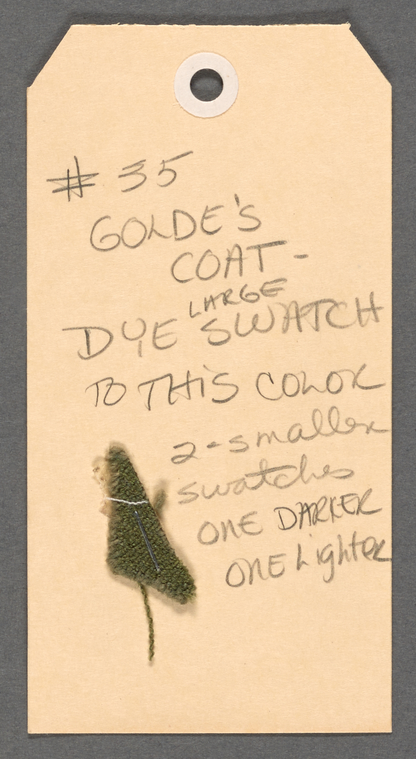 # 35
GOLDE'S
COAT -
LARGE
DYE SWATCH
TO THIS COLOR
2 - smaller
swatches
ONE DARKER
ONE Lighter